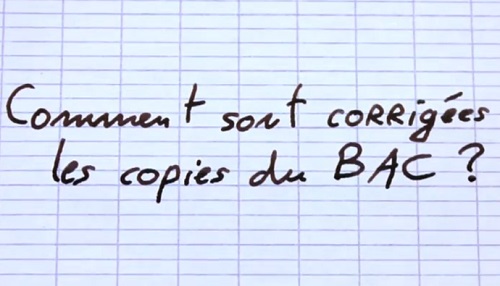 Comment sont corrigées
les copies du BAC ?